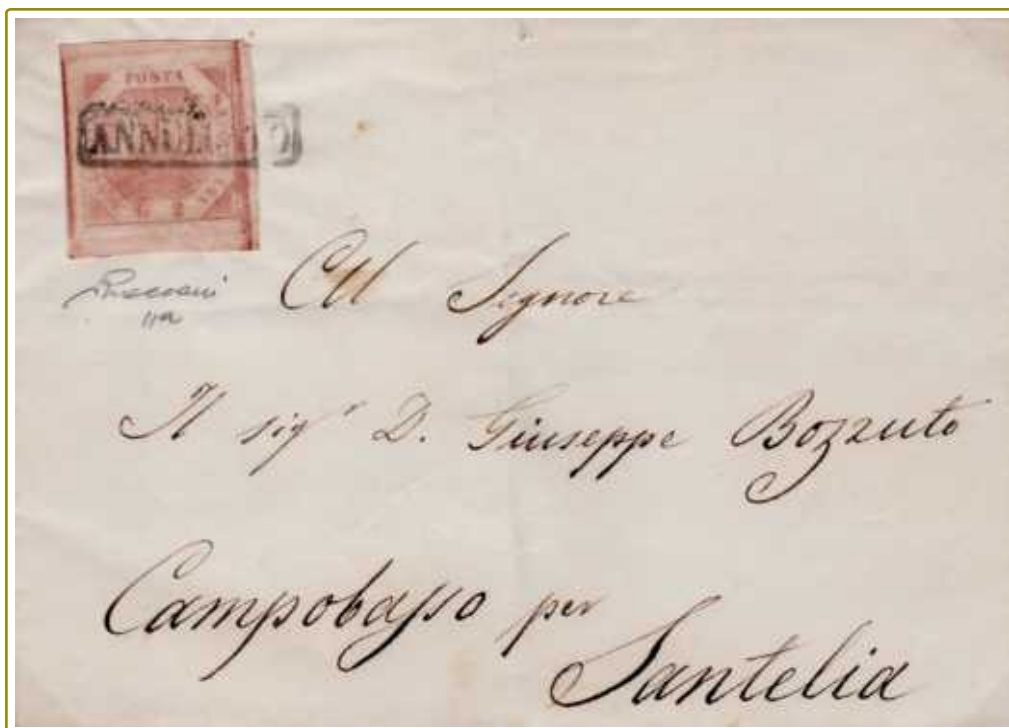 POSTA
ANNULLATO
Al Signore
Il sig.r D. Giuseppe Bozzuto
Campobasso per
Santelia